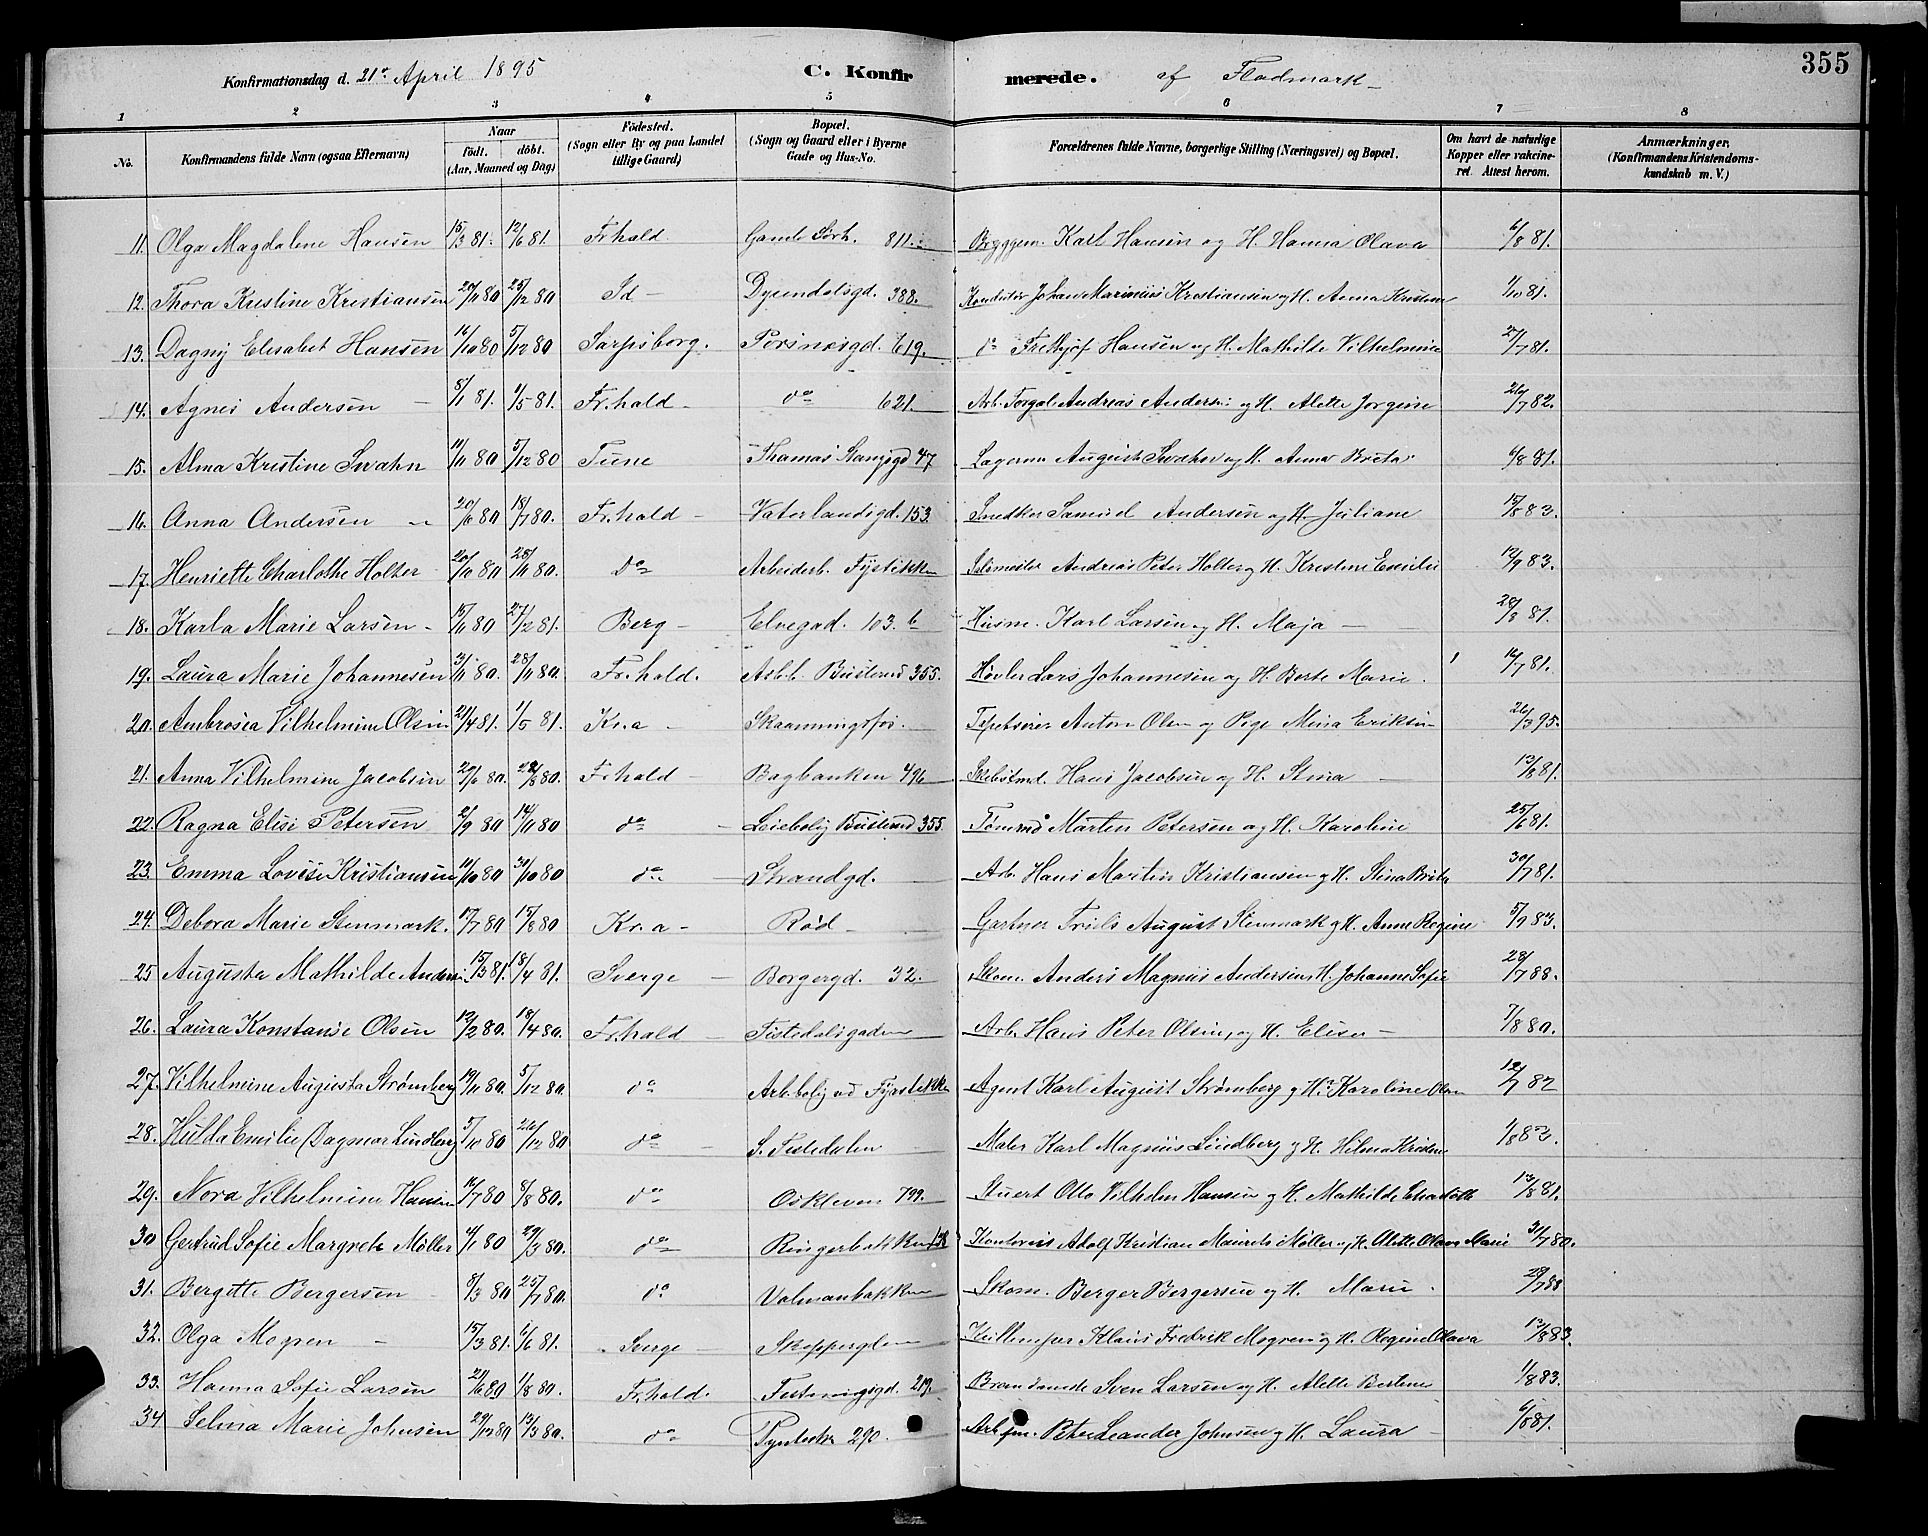 355
Konfirmationsdag d. 21de April 1895 C. Konfirmerede. af Flodmark
1 2 3 4 5 6 7 8
No. Konfirmandens fulde Navn (ogsaa Efternavn) Naar födt. döbt. (Aar, Maaned og Dag) Födested. (Sogn eller By og paa Landet tillige Gaard) Bopæl. (Sogn og Gaard eller i Byerne Gade og Hus-No. Forældrenes fulde Navne, borgerlige Stilling (Næringsvei) og Bopæl. Om havt de naturlige Kopper eller vakcineret. Attest herom. Anmærkninger. (Konfirmandens Kristendomskundskab m. V.)
11. Olga Magdalene Hansen 15/3 81. 12/6 81. Fr.hald Gamle 811. Bryggem. Karl Hansen og H. Hanna Olava 6/8 81.
12. Thora Kristine Kristiansen 20/11 80 25/12 80 Id Dyrendalsgd. 388. Konduktør Johan Marinius Kristiansen og H. Anna Kristine 1/10 81.
13. Dagny Elisabet Hansen 16/10 80 5/12 80 Sarpsborg. 619. do Frithjof Hansen og H. Mathilde Vilhelmine 27/7 81.
14. Agnes Andersen 8/1 81. 1/5 81. Fr.hald do 621. Arb. Andreas Andersen og H. Alette Jorgine 26/7 82.
15. Alma Kristine Svahn 11/11 80 5/12 80 Tune Thomas 47 August Svahn og H. Anna Brita 6/8 81.
16. Anna Andersen 20/6 80 18/7 80. Fr.hald Vaterlandsgd. 153. Snedker Samuel Andersen og H. Juliane 13/8 83.
17. Henriette Charlothe Holter 20/10 80 28/11 80. do Arbeiderb. Fyrstikken Andreas Peter Holter og H. Kristine Emilie 12/9 83.
18. Karla Marie Larsen 15/11 80 27/2 81. Berg Elvegad. 103. b Husm. Karl Larsen og H. Maja 28/8 81.
19. Laura Marie Johannesen 3/11 80. 28/11 80. Fr.hald. Arb.b. Busterud 355. Høvler Lars Johannesen og H. Berte Marie. 12/7 81.
20. Ambrosea Vilhelmine Olsen 21/4 81. 1/5 81. Kr.a Skaanningsfos. Anton Olsen og Pige Mina Eriksen 26/3 95.
21. Anna Vilhelmine Jacobsen 20/6 80. 80. Fr.hald Bagbanken 496 Hans Jacobsen og H. Stina 13/8 81.
22. Ragna Elise Petersen 2/9 80 14/11 80 do Leiebolig Busterud 355. Tømmd. Martin Petersen og H. Karoline 25/6 81.
23. Emma Lovise Kristiansen 10/10 80 30/10 80 do Strandgd. Arb. Hans Martin Kristiansen og H. Stina Brita 30/7 81.
24. Debora Marie Stenmark. 17/7 80 15/8 80 Kr.a Rød Gartner August Stenmark og H. Anne Regine 5/9 83.
25 Augusta Mathilde Anders. 15/3 81. 18/4 81. Sverge Borgergd. 32. Skom. Anders Magnus Andersen H. Johanne Sofie 28/7 88.
26. Laura Konstanse Olsen 12/2 80. 18/4 80. Fr.hald Tistedalsgaden Arb. Hans Peter Olsen, og H. Elise 7/8 80.
27. Vilhelmine Augusta Strømberg 19/11 80. 5/12 80. do Arb.bolig ved Fyrstikken Agent Karl August Strømberg og H. Karoline Olsen 12/7 82
28. Hulda Emilie Dagmar Lindberg 5/10 80 26/12 80 do S. Tistedalen Maler Karl Magnus Lindberg og H. Hilma Kristine 1/8 82.
29. Nora Vilhelmine Hansen 16/7 80 8/8 80. do Oskleven 799. Stuert Otto Vilhelm Hansen og H. Mathilde Charlotte 13/8 81.
30 Gertrud Sofie Margrete Møller 4/1 80 29/3 80. do Ringerbakken Kontorist Adolf Kristian Maurits Møller og H. Alette Olava Marie 31/7 80.
31. Bergitte Bergersen 8/3 80 25/7 80. do Volmanbakken Skom. Berger Bergersen og H. Marie. 29/7 88
32. Olga Mogren 15/3 81. 6/6 81. Sverge Skeppergden Klaus Fredrik Mogren og H. Regine Olava 13/8 83.
33. Hanna Sofie Larsen 21/6 80 1/8 80. Fr.hald. Festningsgd. 219. Sven Larsen og H. Alette Bertine 1/8 83.
34 Selma Marie Johnsen 29/12 80 13/3 80. do 290. Arb.fm. Peter Leander Johnsen og H. Laura 6/8 81.